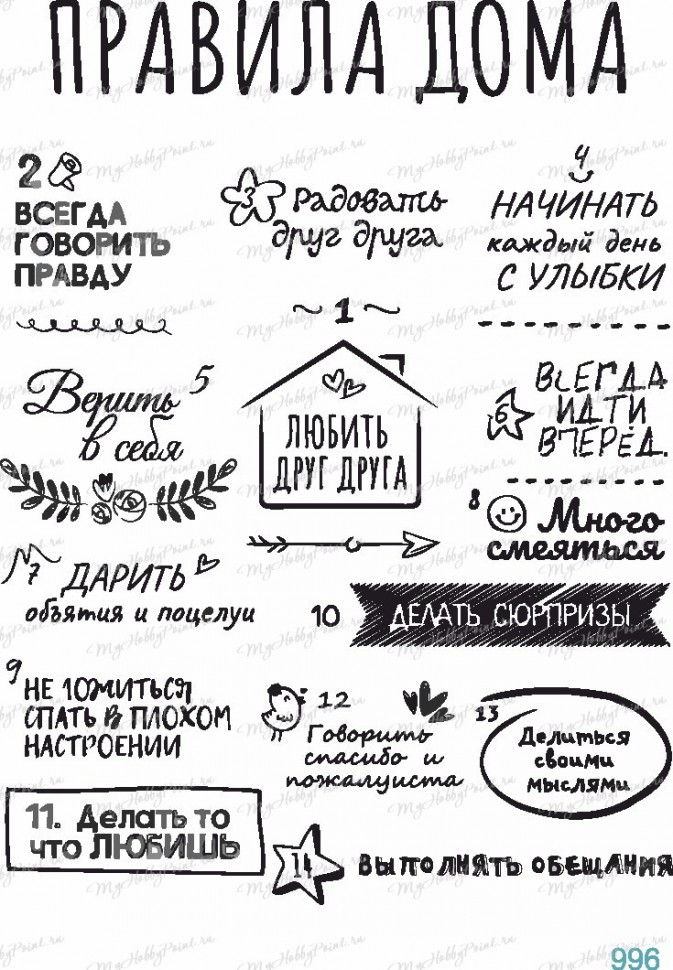 ПРАВИЛА ДОМА
2
ВСЕГДА
ГОВОРИТЬ
ПРАВДУ
3 Радовать
друг друга
4
НАЧИНАТЬ
каждый день
С УЛЫБКИ
~ 1 ~
ЛЮБИТЬ
ДРУГ ДРУГА
Верить 5
в себя
6 ВСЕГДА
ИДТИ
ВПЕРЁД.
7 ДАРИТЬ
объятия и поцелуи
8 Много
смеяться
10 ДЕЛАТЬ СЮРПРИЗЫ
9 НЕ ЛОЖИТЬСЯ
СПАТЬ В ПЛОХОМ
НАСТРОЕНИИ
12
Говорить
спасибо и
пожалуиста
13
Делиться
своими
мыслями
11. Делать то
что ЛЮБИШЬ
14 ВЫПОЛНЯТЬ ОБЕЩАНИЯ
996
MyHobbyPrint.ru